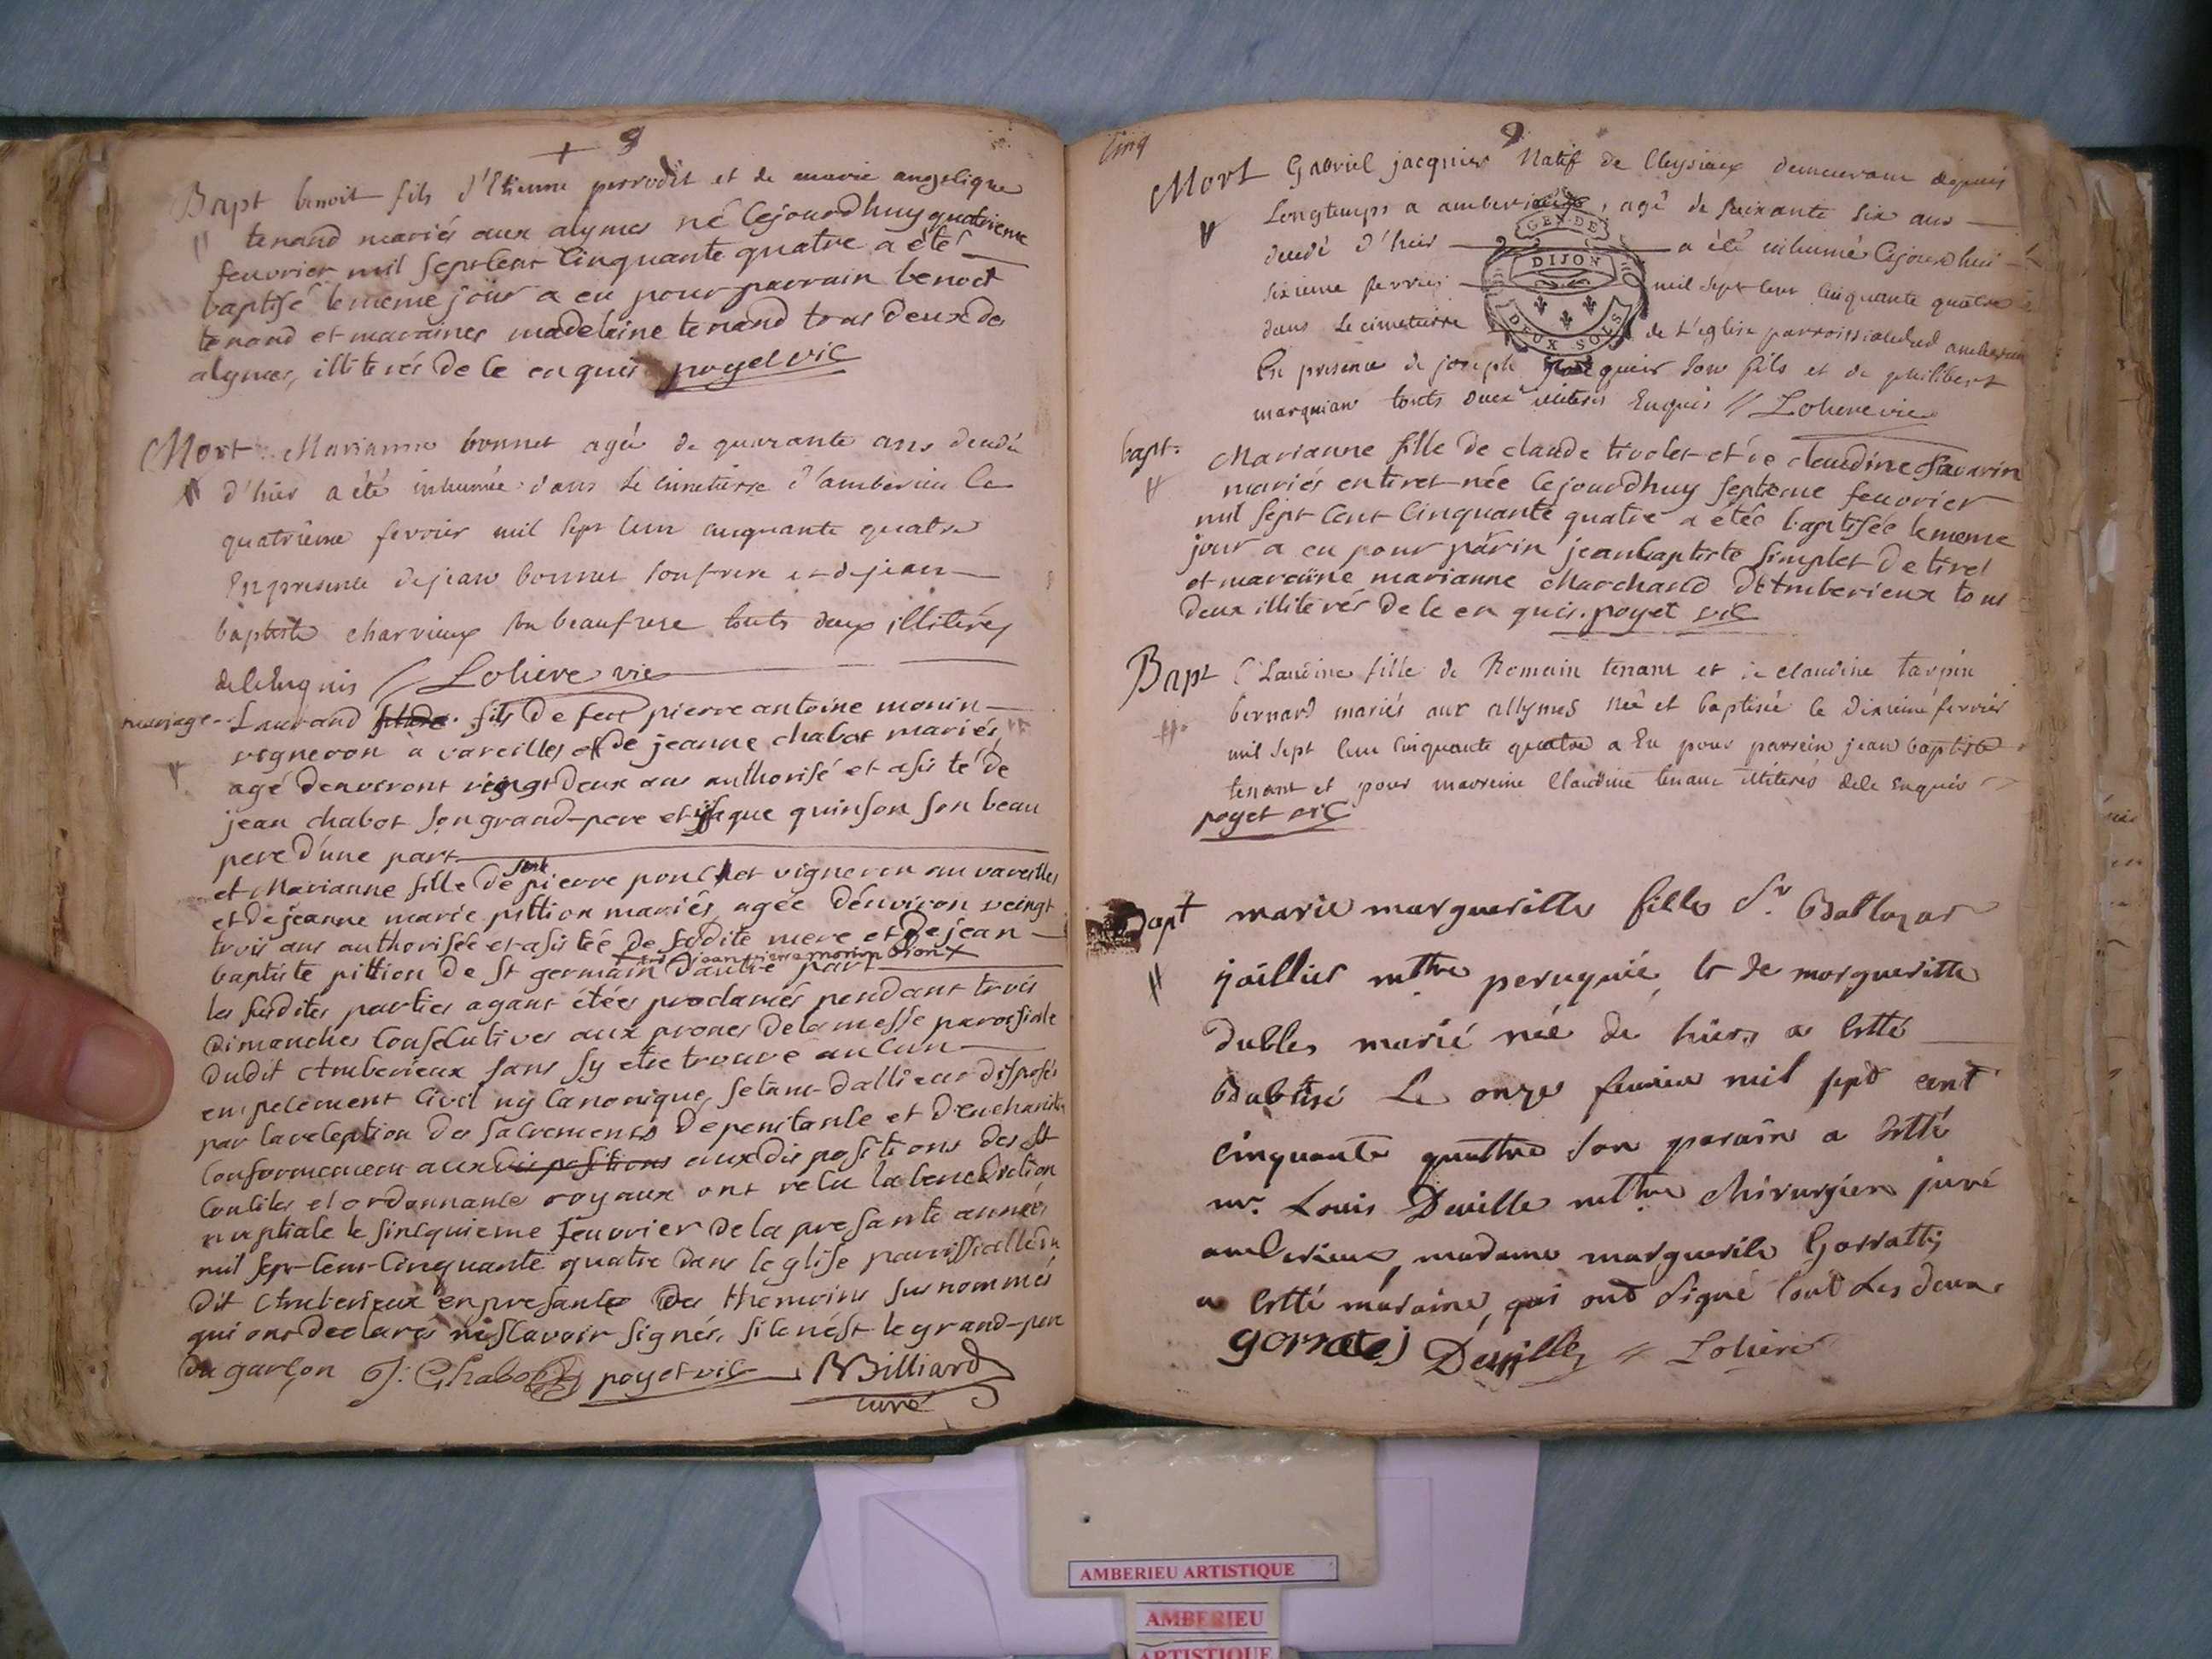 + 9
Bapt benoit fils d'Etienne perrodit et de marie angelique
tenand mariés aux alymes né cejourdhuy quatrieme
feuvrier mil sept cent cinquante quatre a été
baptisé le meme jour a eu pour parrain benoit
tenand et maraines madelaine tenand tous deux des
alymes, illiterés de ce enquis poyet vic
Mort Marianne bonnet agée de quarante ans decedée
d'hier a été inhumée dans le cimetierre d'amberieu le
quatriême fevrier mil sept cent cinquante quatre
En presence de jean bonnet son frere et de jean
baptiste charvieux son beaufrere touts deux illiterés
de ce Enquis // Loliere vic
mariage Laurand fils de feu pierre antoine monin
vigneron à vareilles et de jeanne chabot mariés,
agé denviront vingt deux ans authorisé et asisté de
jean chabot son grand-pere et jsaque quinson son beau
pere d'une part
et Marianne fille de feu pierre ponchet vigneron au vareilles
et de jeanne marie pittion mariés, agée d'environ veingt
trois ans authorisée et asistée de sadite mere et de jean
baptiste pittion de St germain d'autre part
les susdites parties ayant étées proclamés pendant trois
dimanches consecutives aux prones de la messe paroissiale
dudit Amberieux sans sy etre trouvé aucun
empechement civil ny canonique, setant dallieur disposés
par la reception des sacrements de penitance et d'eucharistie
conformement aux dispositions aux dispositions des St
conciles et ordonnances royaux ont recu la benediction
nuptiale le sincquieme feuvrier de la presante année
mil sept cent cinquante quatre dans leglise parrissialle du
dit Amberieux en presance des themoins sus nommés
qui ont declarés ne scavoir signés, si ce nest le grand-pere
du garçon J: Chabot poyet vic Billiard
curé
cinq 9
Mort Gabriel jacquier Natif de Cleysieux demeurant depuis
Longtemps a amberieux, agé de soixante six ans
decedé d'hier a été inhumé cejourd'hui
sixieme fevrier mil sept cent cinquante quatre
dans le cimetierre de L'eglise parroissialle dud amberieu
En presence de joseph jacquier son fils et de philibert
marquian touts deux illiterés Enquis // Loliere vic
GEN. DE
DIJON
DEUX SOLS
bapt. Marianne fille de claude tivolet et de claudine Savarin
mariés en tiret née cejourdhuy septieme feuvrier
mil sept cent cinquante quatre a étée baptisée le meme
jour a eu pour parin jean baptiste simplet de tiret
et maraine marianne Marchand d'Amberieux tous
deux illiterés de ce enquis. poyet vic
Bapt Claudine fille de Romain tenant et de claudine tarpin
bernard mariés aux allymes née et baptisée le dixieme fevrier
mil sept cent cinquante quatre a Eu pour parrein jean baptiste
tenant et pour marreine Claudine tenant illiterés de ce Enquis
poyet vic
Bapt marie margueritte fille Sr Baltazar
jaillier mttre peruquié, et de margueritte
dubles marié née de hier, a Etté
Babtisé Le onze feurier mil sept cent
cinquante quattre son parain a Etté
mr. Louis Deville mttre chirurgien juré
amberieux, madame marguerite Gorratty
a Etté maraine, qui ont signé tout Les deux
gorratej Deville // Loliere
AMBERIEU ARTISTIQUE
AMBERIEU
ARTISTIQUE